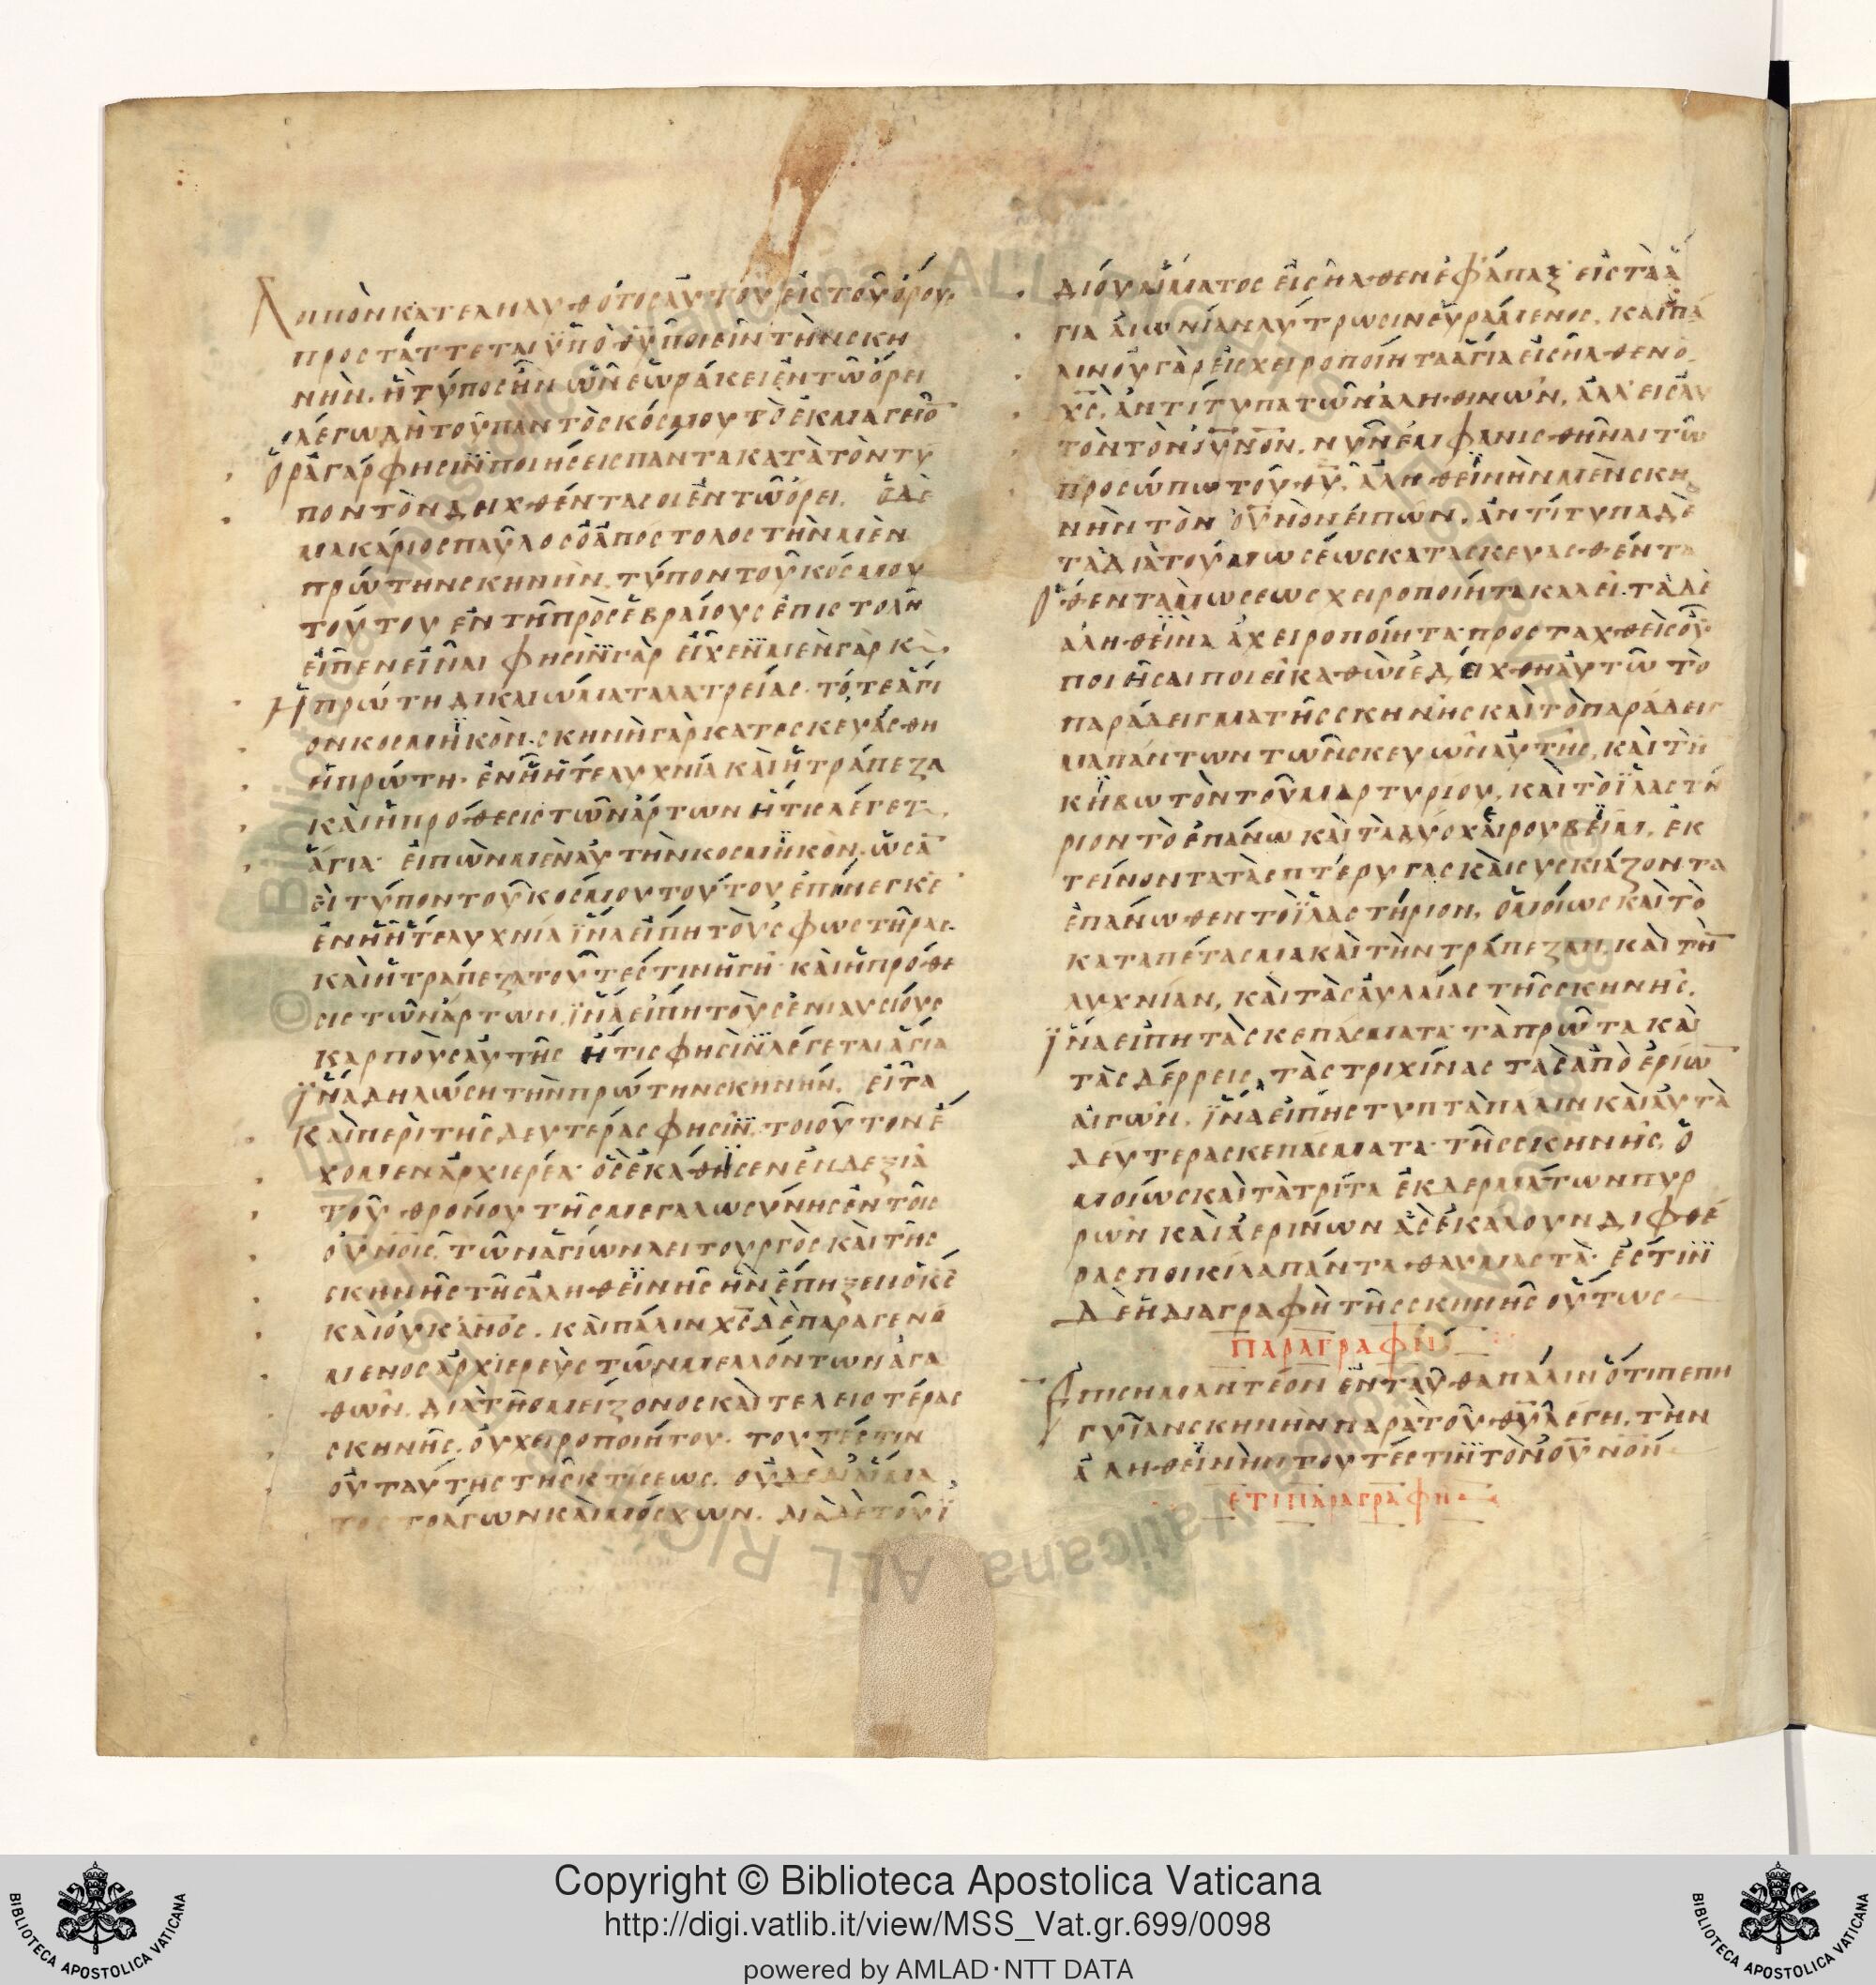 Λυπὸν κατεληλυθότος αὐτοῦ ἐκ τοῦ ὄρους
προστάττεται ὑπὸ θ̅υ̅ ποιεῖν τὴν σκη
νὴν. ἥ τύπος ἦν ὧν ἑωράκει ἐν τῷ ὄρει
λέγω δὴ τοῦ παντὸς κόσμου τὸ ἐκμαγεῖο̅
Ὅρα γάρ φησὶν ποιήσεις πάντα κατὰ τὸν τύ
πον τὸν δειχθέντα σοι ἐν τῷ ὄρει. ὅ δὲ
μακάριος παῦλος ὁ ἀπόστολος τὴν μὲν
πρώτην σκηνὴν τύπον τοῦ κόσμου
τούτου ἐν τῇ πρὸς ἑβραίους ἐπιστολῇ
εἶπεν εἶναι φησὶν γὰρ εἶχεν μὲν γὰρ κ̀
Ἡ πρώτη δικαιώματα λατρείας τό τε ἅγι
ον κοσμηκὸν. σκηνὴ γὰρ κατεσκευάσθη
ἡ πρώτη. ἐν ᾗ ἥ τε λυχνία καὶ ἡ τράπεζα
καὶ ἡ πρόθεσις τῶν ἄρτων ἥτις λέγεται
ἅγια εἰπὼν μὲν αὐτὴν κοσμηκὸν. ὡσα̅
εὶ τύπον τοῦ κόσμου τούτου ἐπήνεγκε
ἐν ᾗ ἥ τε λυχνία ἵνα εἴπη τοὺς φωστῆρας.
καὶ ἡ τράπεζα τοῦτέστιν ἡ γῆ καὶ ἡ πρόθε
σις τῶν ἄρτων. ἵνα εἴπη τοὺς ἐνιαυσίους
καρποὺς αὐτῆς ἥτις φησὶν λέγεται ἅγια
ἵνα δηλώση τὴν πρώτην σκηνήν. εἶτα
Καὶ περὶ τῆς δευτέρας φησὶν. τοιοῦτον ἔ
χομεν ἀρχιερέα ὃς ἐκάθησεν ἐν δεξιᾷ
τοῦ θρόνου τῆς μεγαλωσύνης ἐν τοῖς
ο̅υ̅νοῖς. τῶν ἁγίων λειτουργὸς καὶ τῆς
σκηνῆς τῆς ἀληθεινῆς ἣν ἔπηξεν ὁ κ̅ς̅
καὶ οὐκ α̅ν̅ο̅ς̅. καὶ πάλιν χ̅ς̅ δὲ παραγενό
μενος ἀρχιερεὺς τῶν μελλόντων ἀγα
θῶν. διὰ τῆς μείζονος καὶ τελειοτέρας
σκηνῆς. οὐ χειροποιήτου. τουτέστιν
οὐ ταύτης τῆς κτίσεως. οὐδὲ δι᾽ αἵμα
τος τράγων καὶ μόσχων. διὰ δὲ τοῦ ἰ
δίου αἵματος εἰσῆλθεν ἐφάπαξ εἰς τὰ ἅ
για αἰωνίαν λύτρωσιν εὑράμενος. καὶ πά
λιν οὐ γὰρ εἰς χειροποίητα ἅγια εἰσῆλθεν ὁ
χ̅ς̅. ἀντίτυπα τῶν ἀληθινῶν. ἀλλ᾽ εἰς αὐ
τὸν τὸν ο̅υ̅νο̅ν̅. νῦν ἐμφανισθῆναι τῷ
προσώπω τοῦ θ̅υ̅. ἀληθεινὴν μὲν σκη
νὴν τὸν ο̅υ̅νὸν εἰπὼν. ἀντίτυπα δὲ
τὰ διὰ τοῦ μωσέως κατασκευασθέντα
ὅθεν τὰ μωσέως χειροποίητα καλεῖ. τὰ δὲ
ἀληθεινὰ ἀχειροποίητα προσταχθεὶς οὖ̅
ποιῆσαι ποιεῖ καθὼς ἐδείχθη αὐτῷ τὸ
παράδειγμα τῆς σκηνῆς καὶ τὸ παράδειγ
μα πάντων τῶν σκευῶν αὐτῆς, καὶ τὴ
κηβωτὸν τοῦ μαρτυρίου, καὶ τὸ ἱλαστή
ριον τὸ ἐπάνω καὶ τὰ δύο χαιρουβεὶμ. ἐκ
τείνοντα τὰς πτέρυγας καὶ συσκιάζοντα
ἐπάνωθεν τὸ ἱλαστήριον, ὁμοίως καὶ τὸ
καταπέτασμα καὶ τὴν τράπεζαν. καὶ τὴ̅
λυχνίαν, καὶ τὰς αὐλαίας τῆς σκηνῆς.
ἵνα εἴπη τὰ σκεπάσματα τὰ πρῶτα καὶ
τὰς δέρρεις, τὰς τριχίνας τὰς ἀπὸ ἐρίω̅
αἰγῶν. ἵνα εἴπης τυπτὰ πάλιν καὶ αὐτὰ
δεύτερα σκεπάσματα τῆς σκηνῆς, ὁ
μοίως καὶ τὰ τρίτα ἐκ δερμάτων πυρ
ρῶν καὶ ἀερίνων ἃς ἐκάλουν διφθέ
ρας ποικίλα πάντα θαυμαστὰ. ἐστὶν
δὲ ἡ διαγραφὴ τῆς σκηνῆς οὕτως
ΠΑΡΑΓΡΑΦΗ
Ἐπισημαντέον ἐνταῦθα πάλιν ὅτι πεπη
γυῖαν σκηνὴν παρὰ τοῦ θ̅υ̅ λέγη. τὴν
ἀληθεινὴν τουτέστιν τὸν ο̅υ̅νόν
ΕΤΙ ΠΑΡΑΓΡΑΦΗ
© Biblioteca Apostolica Vaticana. ALL RIGHTS RESERVED
Copyright © Biblioteca Apostolica Vaticana
http://digi.vatlib.it/view/MSS_Vat.gr.699/0098
powered by AMLAD·NTT DATA
BIBLIOTECA APOSTOLICA VATICANA
BIBLIOTECA APOSTOLICA VATICANA